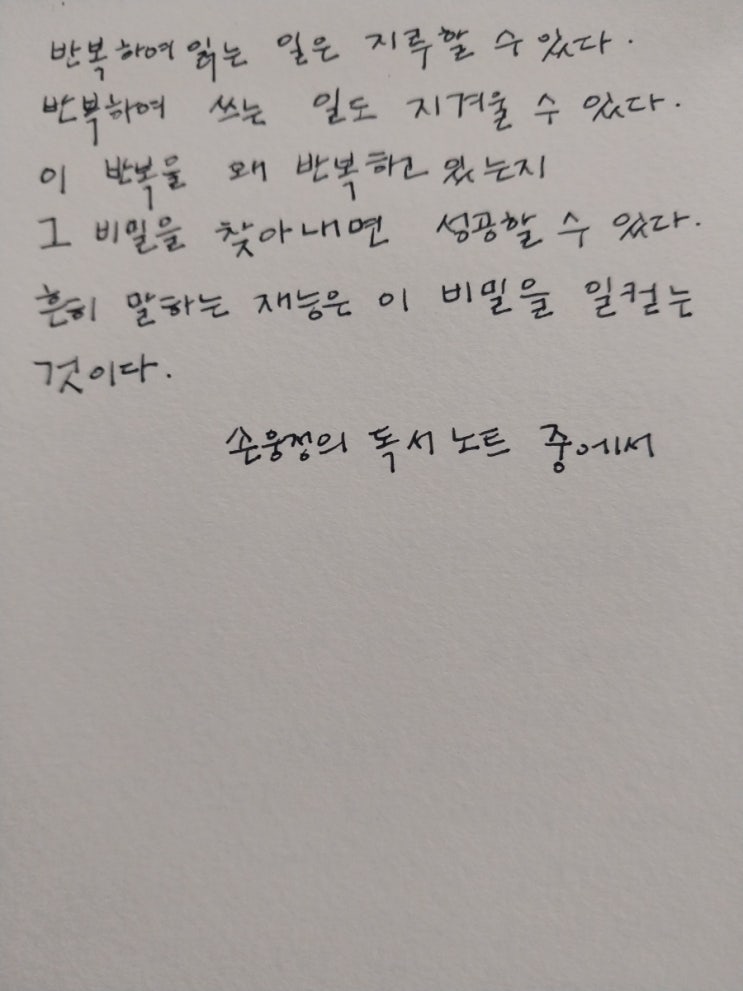 반복하여 읽는 일은 지루할 수 있다.
반복하여 쓰는 일도 지겨울 수 있다.
이 반복을 왜 반복하고 있는지
그 비밀을 찾아내면 성공할 수 있다.
흔히 말하는 재능은 이 비밀을 일컫는
것이다.
손웅정의 독서 노트 중에서